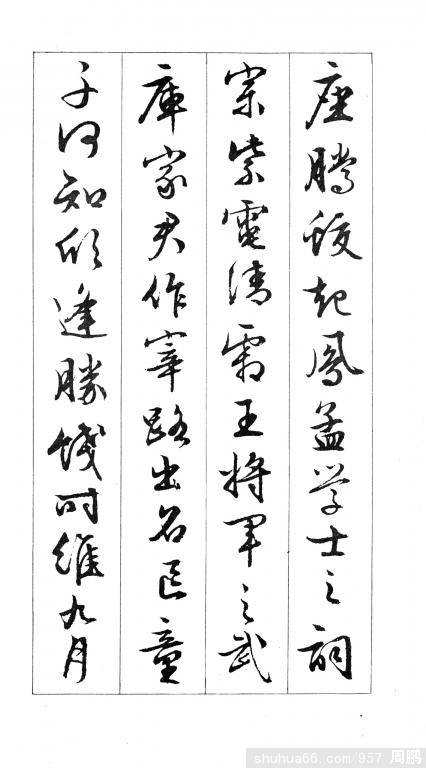 座腾蛟起凤孟学士之词
宗紫電清霜王将军之武
庫家君作宰路出名区童
子何知欣逢勝餞时维九月
shuhua66.com/957 周鹏